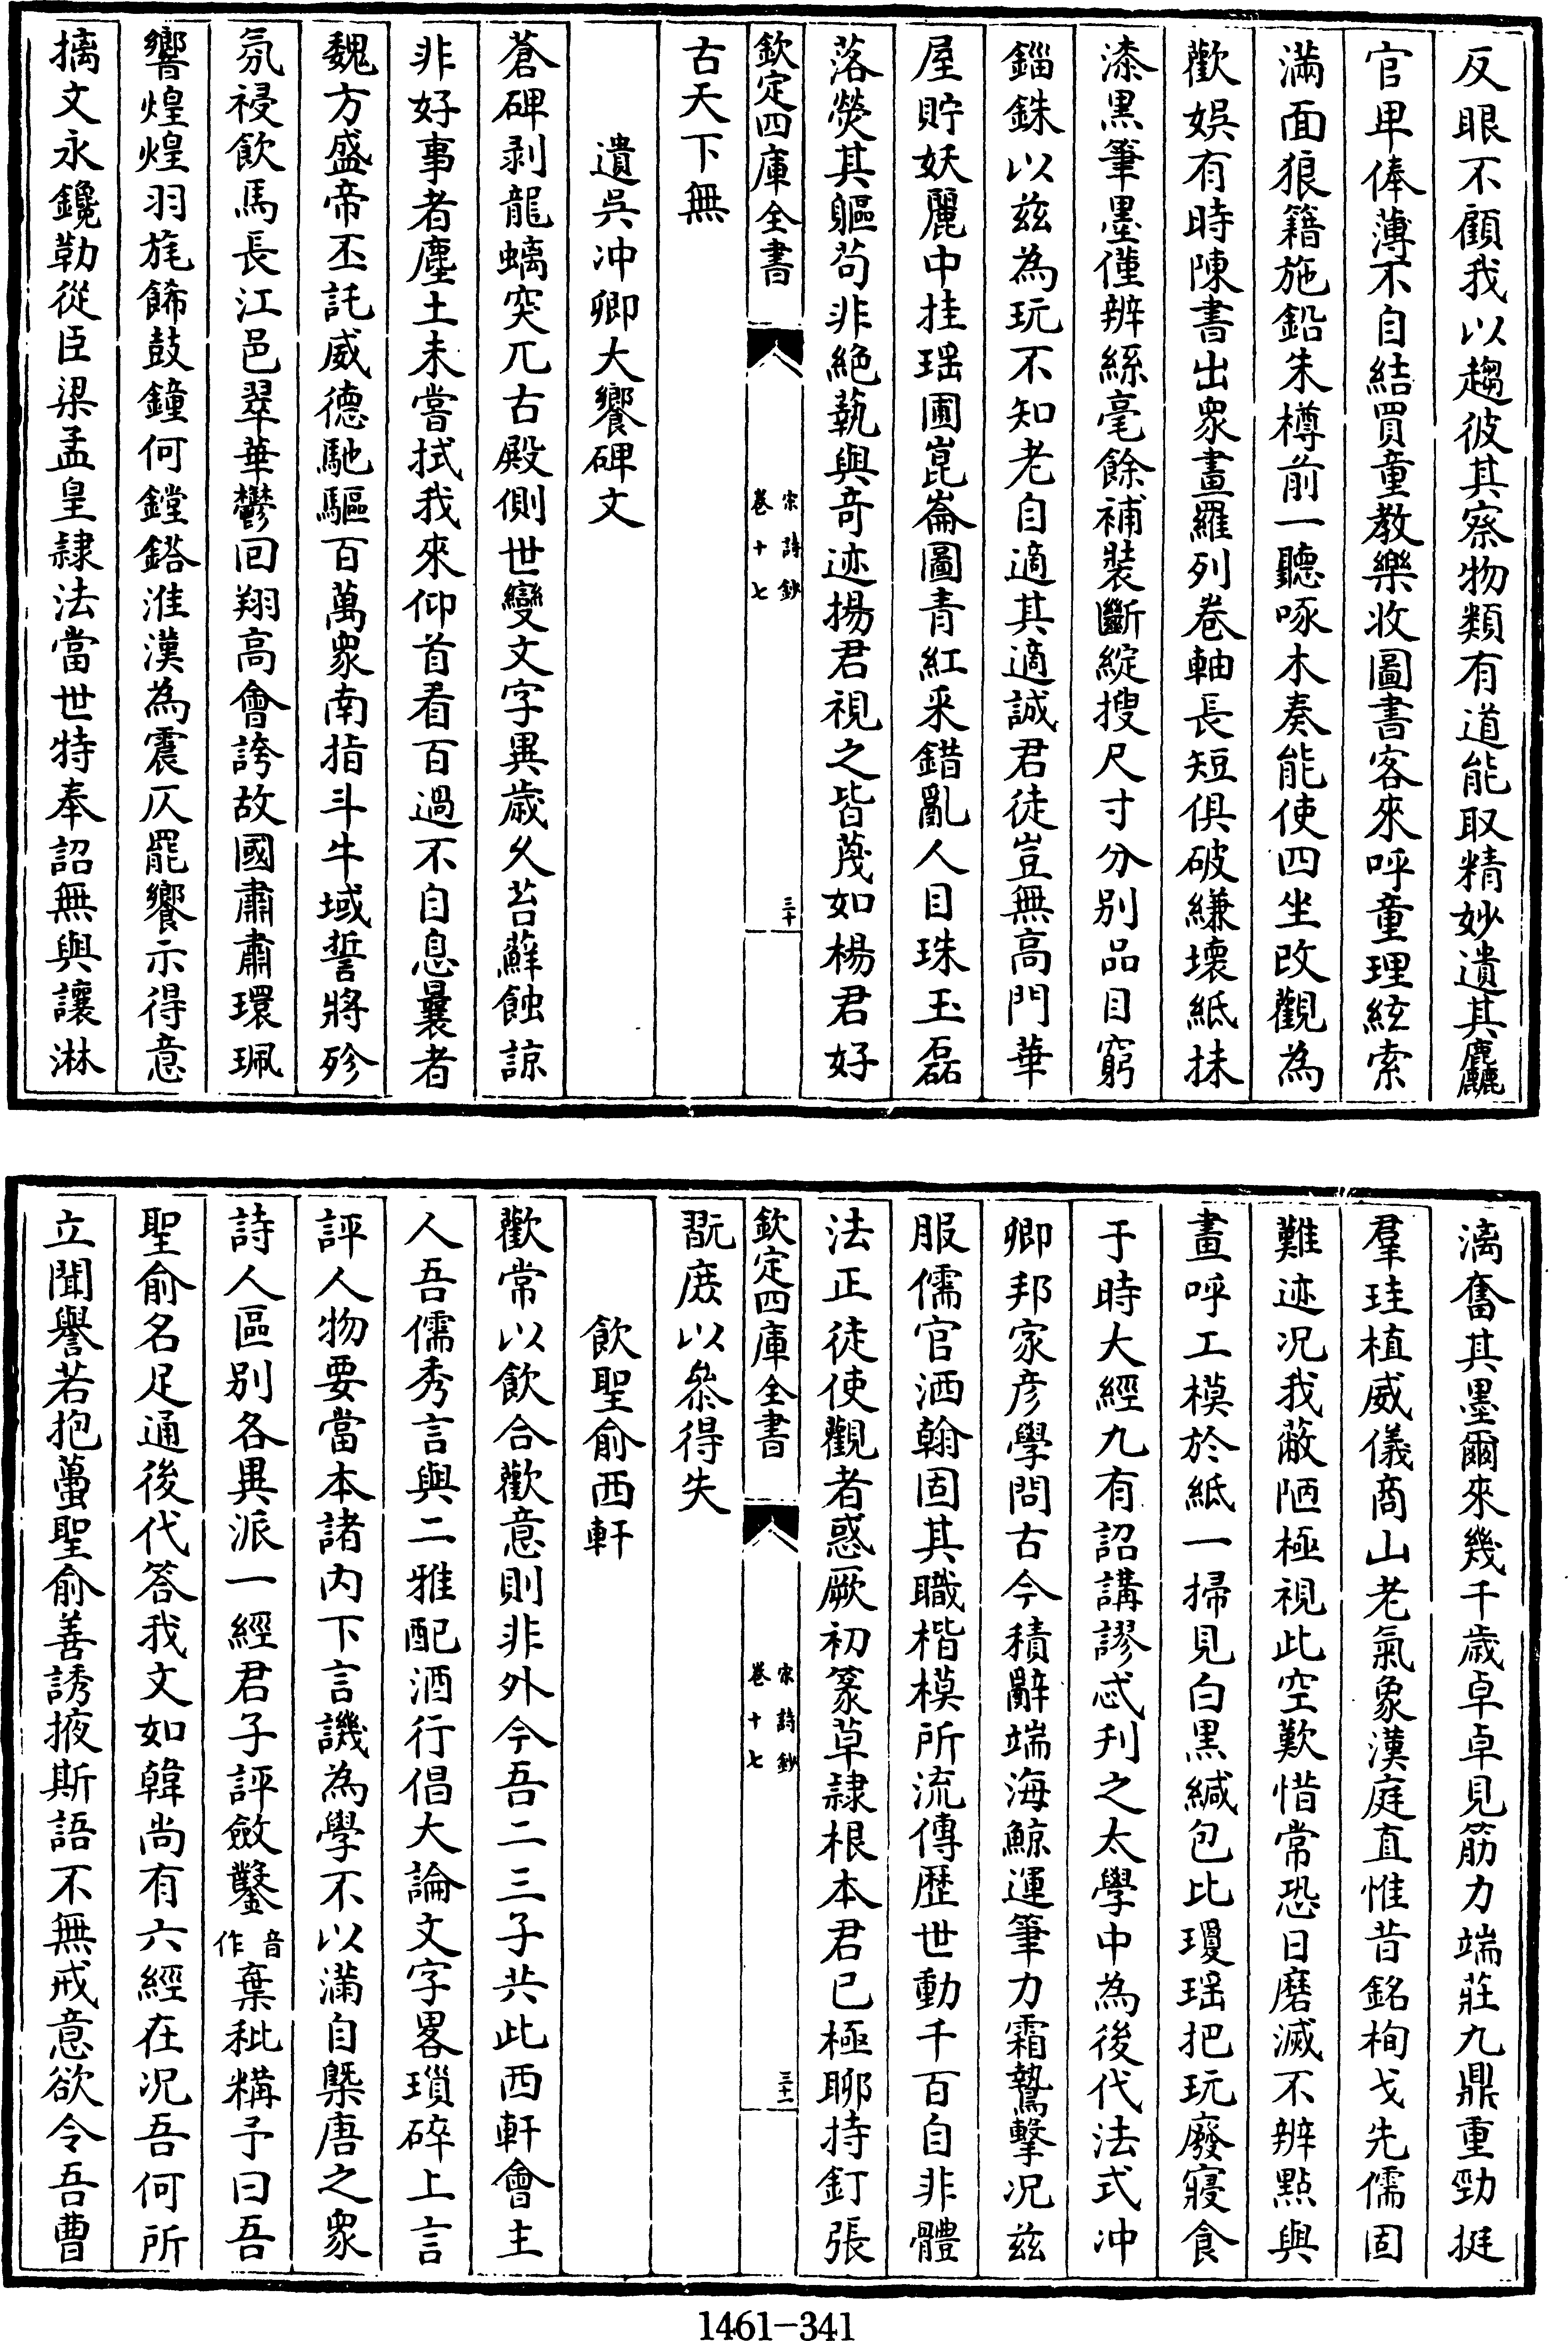 反眼不顧我以趨彼其察物類有道能取精妙遺其麤
官卑俸薄不自結買童教樂收圖書客來呼童理絃索
滿面狼籍施鉛朱樽前一聽啄木奏能使四坐改觀為
歡娯有時陳書出衆畫羅列卷軸長短俱破縑壞紙抹
漆黒筆墨僅辨絲毫餘補裝斷綻搜尺寸分别品目窮
錙銖以兹為玩不知老自適其適誠君徒豈無高門華
屋貯妖麗中挂瑶圃崑崙圖青紅采錯亂人目珠玉磊
落熒其軀茍非絶藝與奇迹揚君視之皆蔑如楊君好
欽定四庫全書
宋詩鈔
卷十七
三十
古天下無
遺吳冲卿大饗碑文
蒼碑剥龍螭突兀古殿側世變文字異歲久苔蘚蝕諒
非好事者塵土未嘗拭我來仰首看百過不自息曩者
魏方盛帝丕託威德馳驅百萬衆南指斗牛域誓將殄
氛祲飲馬長江邑翠華鬱回翔高會誇故國肅肅環珮
響煌煌羽旄餙鼓鐘何鏜鎝淮漢為震仄罷饗示得意
摛文永鑱勒從臣梁孟皇隷法當世特奉詔無與讓淋
漓奮其墨爾來幾千歳卓卓見筋力端莊九鼎重勁挺
羣珪植威儀商山老氣象漢庭直惟昔銘栒戈先儒固
難迹况我蔽陋極視此空歎惜常恐日磨滅不辨點與
畫呼工模於紙一掃見白黒緘包比瓊瑶把玩廢寢食
于時大經九有詔講謬忒刋之太學中為後代法式冲
卿邦家彦學問古今積辭端海鯨運筆力霜鷙擊况兹
服儒官洒翰固其職楷模所流傳歴世動千百自非體
法正徒使觀者惑厥初篆草隷根本君已極聊持釘張
欽定四庫全書
宋詩鈔
卷十七
三十一
翫庶以叅得失
飲聖俞西軒
歡常以飲合歡意則非外今吾二三子共此西軒會主
人吾儒秀言與二雅配酒行倡大論文字畧瑣碎上言
評人物要當本諸内下言譏為學不以滿自槩唐之衆
詩人區别各異派一經君子評斂鑿音作棄秕糠予曰吾
聖俞名足通後代答我文如韓尚有六經在况吾何所
立聞譽若抱蠆聖俞善誘掖斯語不無戒意欲令吾曹
1461-341